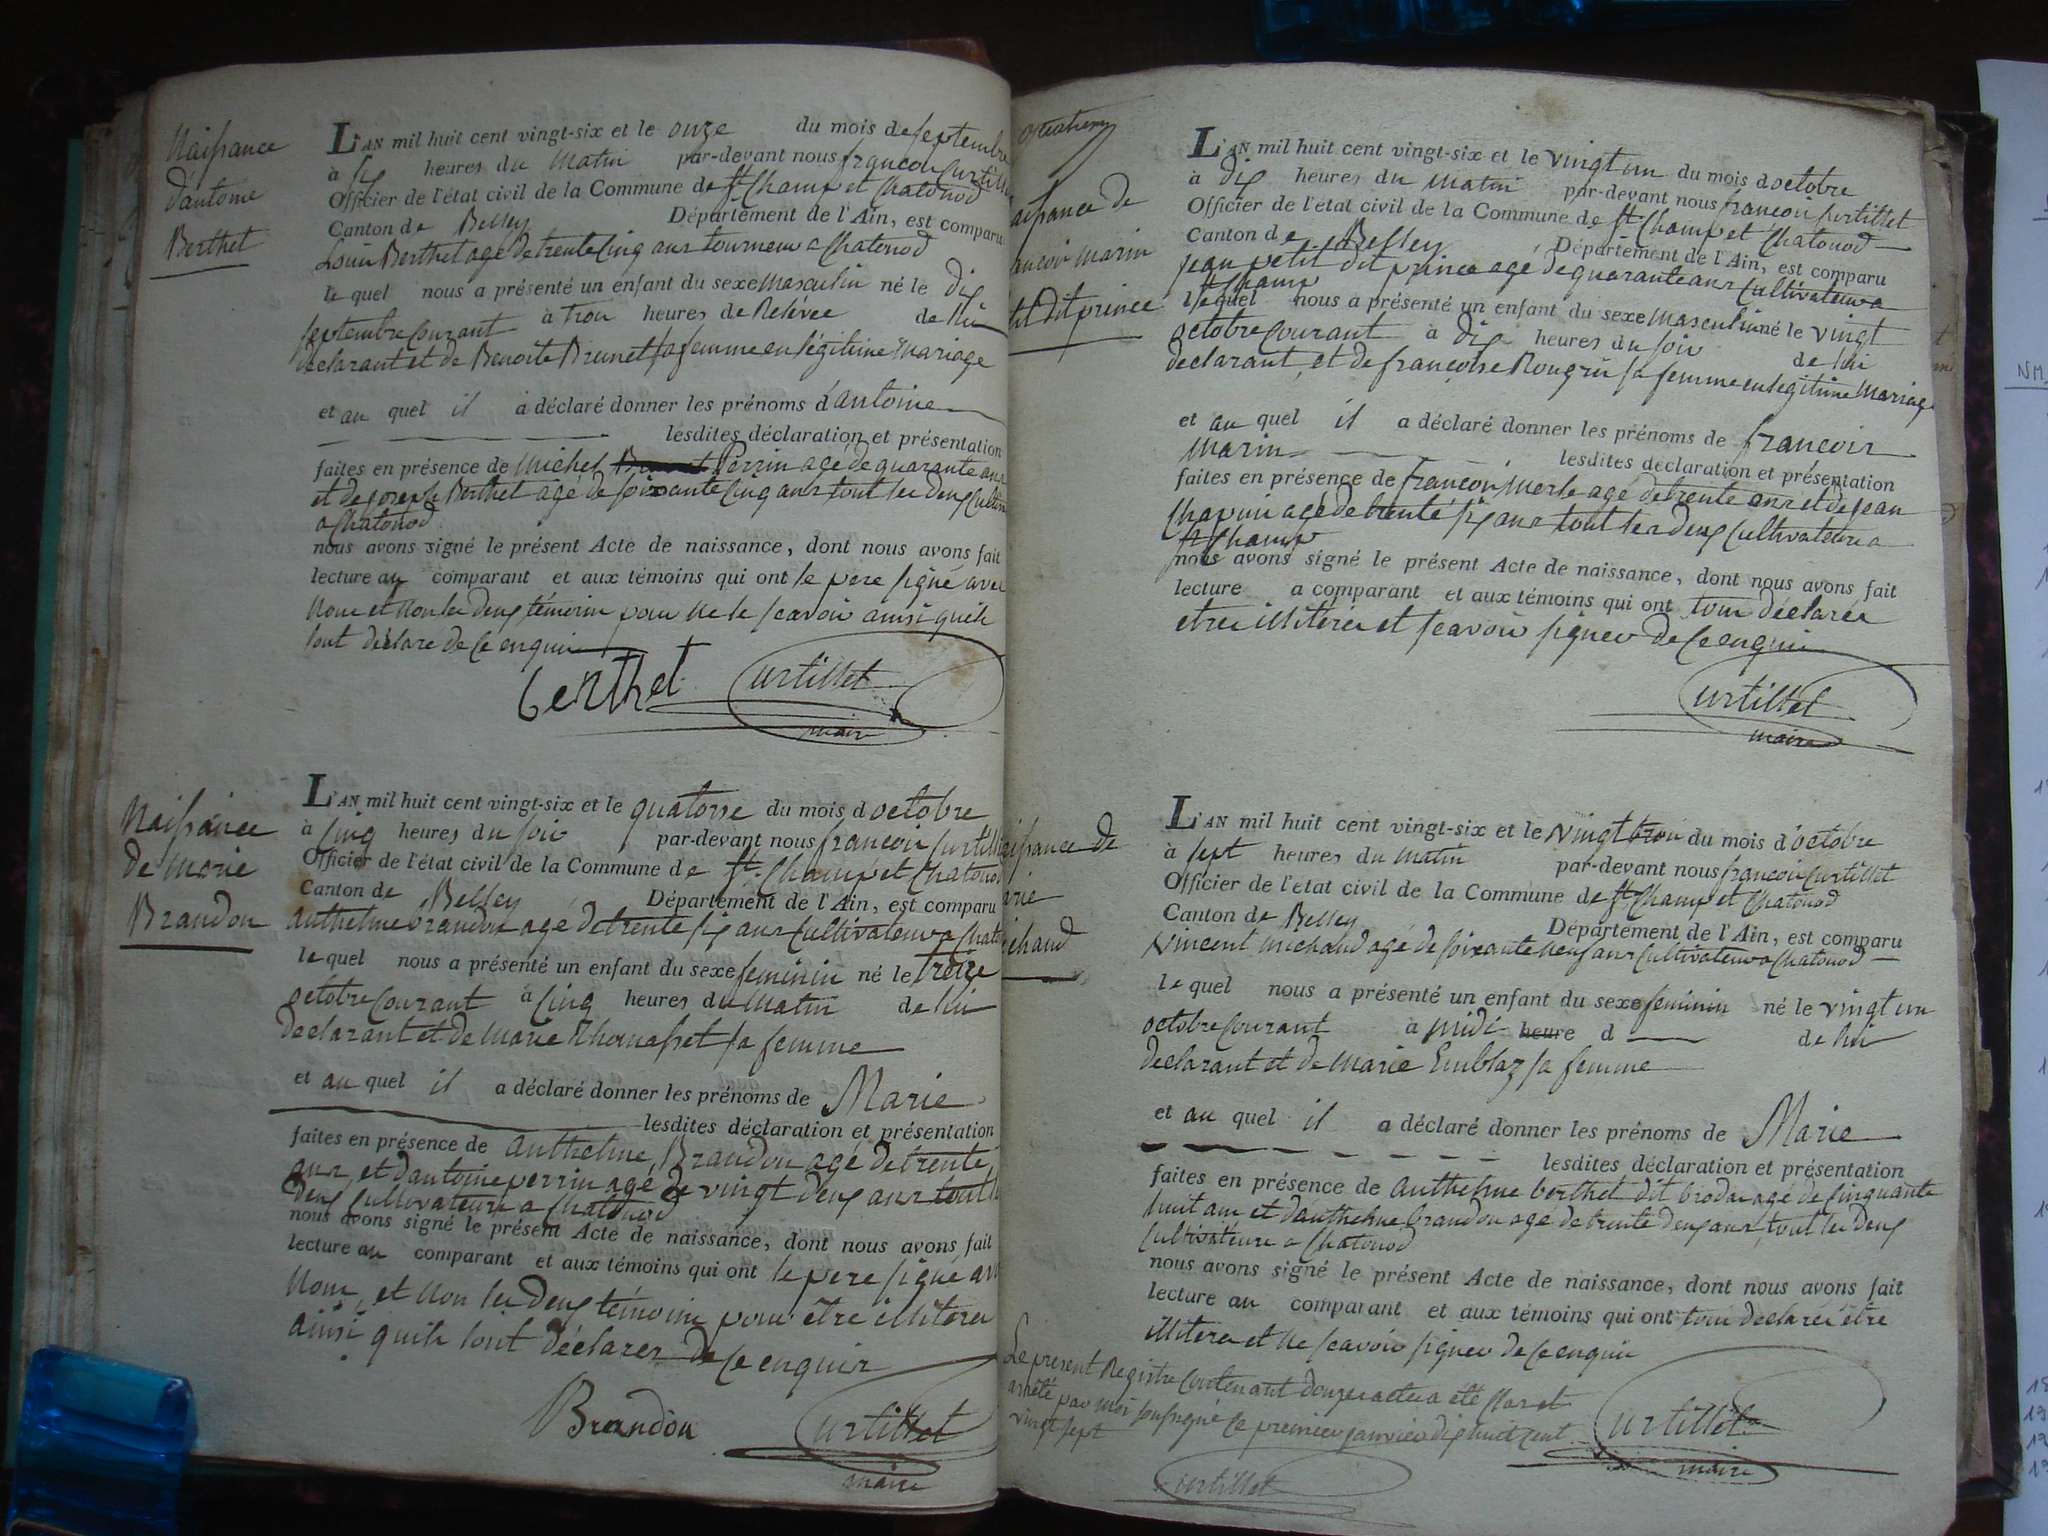 Naissance
d'antoine
Berthet
L'AN mil huit cent vingt-six et le onze du mois de septembre
à six heures du matin par-devant nous francois Curtillet
Officier de l'état civil de la Commune de St Champ et Chatonod
Canton de Belley Département de l'Ain, est comparu
Louis Berthet agé de trente cinq ans tourneur a Chatonod
le quel nous a présenté un enfant du sexe masculin né le dix
septembre Courant à trois heures de Relévée de lui
declarant et de Benoite Brunet sa femme en légitime mariage
et au quel il a déclaré donner les prénoms d'antoine
lesdites déclaration et présentation
faites en présence de Michel Perrin agé de quarante ans
et de joseph Berthet agé de soixante cinq ans tout les deux Cultiv
a Chatonod
nous avons signé le présent Acte de naissance, dont nous avons fait
lecture au comparant et aux témoins qui ont le pere signé avec
Nous et Non les deux témoins pour ne le scavoir ainsi quils
lont déclare de ce enquis
Berthet Curtillet
maire
Naissance
de marie
Brandon
L'AN mil huit cent vingt-six et le quatorse du mois d octobre
à cinq heures du soir par-devant nous francois Curtill
Officier de l'état civil de la Commune de St Champ et Chatonod
Canton de Belley Département de l'Ain, est comparu
anthelme brandon agé de trente six ans Cultivateur a Chat
le quel nous a présenté un enfant du sexe feminin né le treize
octobre Courant à cinq heures du matin de lui
declarant et de marie Thomasset sa femme
et au quel il a déclaré donner les prénoms de Marie
lesdites déclaration et présentation
faites en présence de anthelme Brandon agé de trente
ans et d'antoine perrin agé de vingt deux ans tout les
deux Cultivateurs a Chatonod
nous avons signé le présent Acte de naissance, dont nous avons fait
lecture au comparant et aux témoins qui ont le pere signé avec
Nous, et Non les deux témoins pour être illiteres
ainsi quils lont déclarer de ce enquis
Brandon Curtillet
maire
aissance de
ancois marin
tit dit prince
L'AN mil huit cent vingt-six et le vingt un du mois d octobre
à dix heures du matin par-devant nous francois Curtillet
Officier de l'état civil de la Commune de St Champ et Chatonod
Canton de Belley Département de l'Ain, est comparu
jean petit dit prince agé de quarante ans Cultivateur a
St Champ
le quel nous a présenté un enfant du sexe masculin né le vingt
octobre Courant à dix heures du soir de lui
declarant, et de françoise sa femme en legitime mariage
et au quel il a déclaré donner les prénoms de francois
marin lesdites déclaration et présentation
faites en présence de francois merle agé de trente ans et de jean
Chapuis agé de trente six ans tout les deux Cultivateurs a
St Champ
nous avons signé le présent Acte de naissance, dont nous avons fait
lecture a comparant et aux témoins qui ont tous déclarés
etres illitéres et scavoir signer de ce enquis
Curtillet
maire
aissance de
arie
ichaud
L'AN mil huit cent vingt-six et le vingt trois du mois d'octobre
à sept heures du matin par-devant nous francois Curtillet
Officier de l'état civil de la Commune de St Champ et Chatonod
Canton de Belley Département de l'Ain, est comparu
Vincent michaud agé de soixante neuf ans Cultivateur a Chatonod
le quel nous a présenté un enfant du sexe feminin né le vingt un
octobre Courant à midi heure d de lui
declarant et de marie Emblaz sa femme
et au quel il a déclaré donner les prénoms de Marie
lesdites déclaration et présentation
faites en présence de anthelme berthet dit agé de Cinquante
huit ans et d'anthelme brandon agé de trente deux ans, tout les deux
Cultivateurs a Chatonod
nous avons signé le présent Acte de naissance, dont nous avons fait
lecture au comparant et aux témoins qui ont tous declarés être
illiteres et ne scavoir signer de ce enquis
Le present Registre Contenant douze actes a été clos et
arrêté par moi soussigné le premier janvier dix huit cent
vingt sept
Curtillet
maire
Curtillet